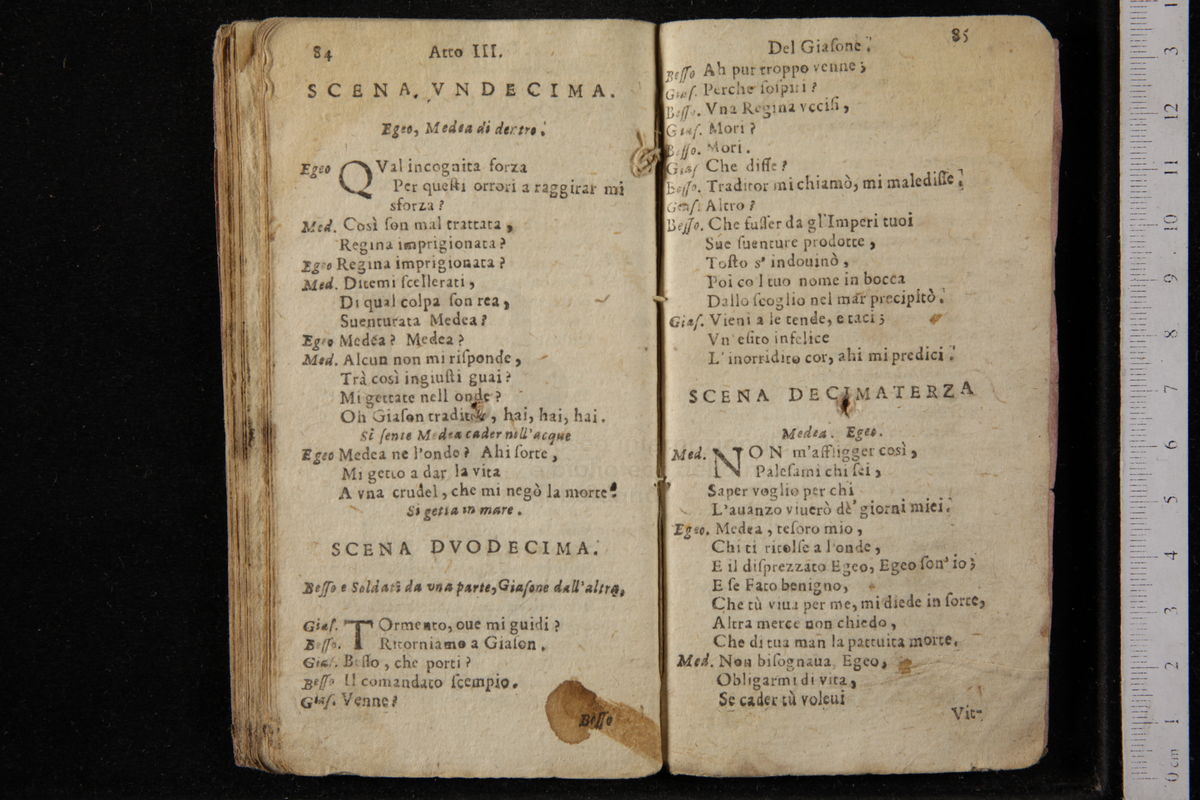 84 Atto III.
SCENA VNDECIMA.
Egeo, Medea di dentro.
Egeo QVal incognita forza
Per queſti orrori a raggirar mi
sforza?
Med. Così ſon mal trattata,
Regina imprigionata?
Egeo Regina imprigionata?
Med. Ditemi ſcellerati,
Di qual colpa ſon rea,
Suenturata Medea?
Egeo Medea? Medea?
Med. Alcun non mi riſponde,
Trà così ingiuſti guai?
Mi gettate nell onde?
Oh Giaſon traditor, hai, hai, hai.
Si ſente Medea cader nell'acque
Egeo Medea ne l'onde? Ahi ſorte,
Mi getto a dar la vita
A vna crudel, che mi negò la morte.
Si getta in mare.
SCENA DVODECIMA.
Beſſo e Soldati da vna parte, Giaſone dall'altra.
Giaſ. TOrmento, oue mi guidi?
Beſſo. Ritorniamo a Giaſon.
Giaſ. Beſſo, che porti?
Beſſo Il comandato ſcempio.
Giaſ. Venne?
Beſſo
Del Giaſone. 85
Beſſo Ah pur troppo venne;
Giaſ. Perche ſoſpiri?
Beſſo. Vna Regina vcciſi,
Giaſ. Mori?
Beſſo. Mori.
Giaſ Che diſſe?
Beſſo. Traditor mi chiamò, mi malediſſe.
Giaſ. Altro?
Beſſo. Che fuſſer da gl'Imperi tuoi
Sue ſuenture prodotte,
Toſto s' indouinò,
Poi co l tuo nome in bocca
Dallo ſcoglio nel mar precipitò.
Giaſ. Vieni a le tende, e taci;
Vn' eſito infelice
L' inorridito cor, ahi mi predici.
SCENA DECIMATERZA
Medea. Egeo.
Med. NON m'affligger così,
Paleſami chi ſei,
Saper voglio per chi
L'auanzo viuerò dè' giorni miei.
Egeo. Medea, teſoro mio,
Chi ti ritolſe a l'onde,
E il diſprezzato Egeo, Egeo ſon' io;
E ſe Fato benigno,
Che tù viua per me, mi diede in ſorte,
Altra merce non chiedo,
Che di tua man la pattuita morte.
Med. Non biſognaua, Egeo,
Obligarmi di vita,
Se cader tù voleui
Vit-